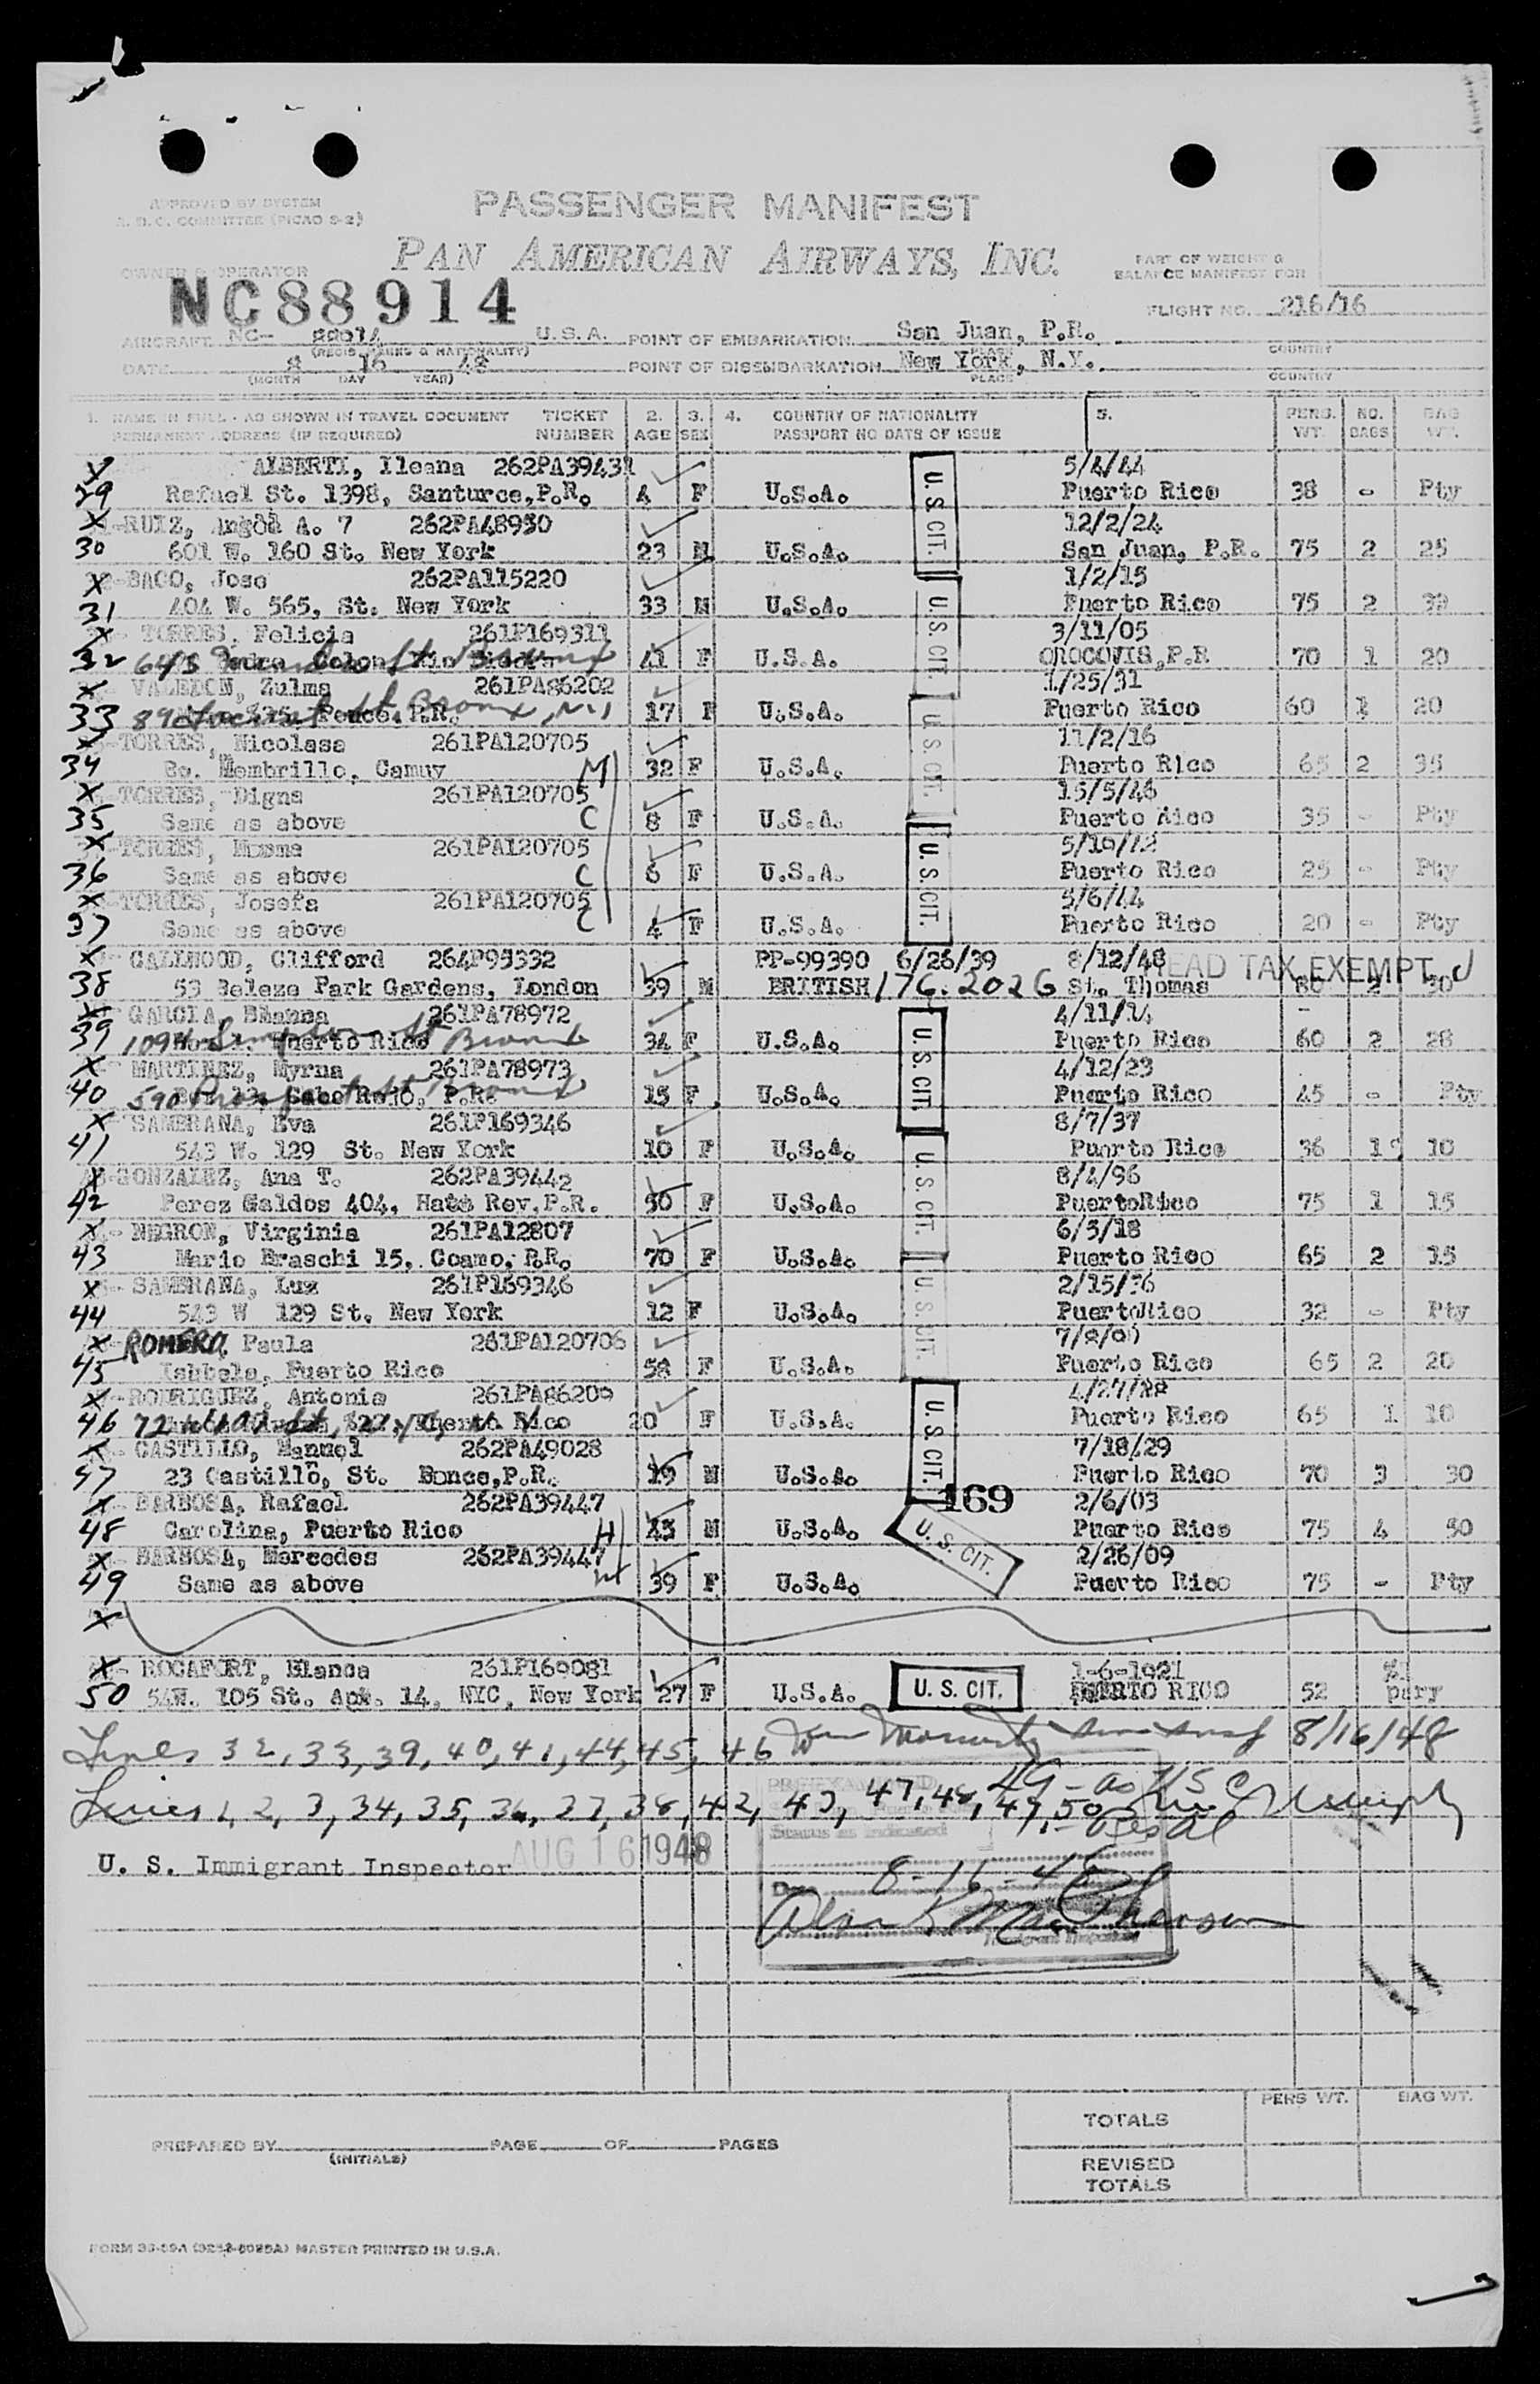 APPROVED BY SYSTEM
A. B. C. COMMITTEE (PICAO S-2)
PASSENGER MANIFEST
PAN AMERICAN AIRWAYS, INC.
PART OF WEIGHT &
BALANCE MANIFEST FOR
OWNER & OPERATOR
NC88914
FLIGHT NO. 216/16
AIRCRAFT NC- 88914 U.S.A. POINT OF EMBARKATION San Juan, P.R.
(REGIS. MARKS & NATIONALITY) PLACE COUNTRY
DATE 8 16 48 POINT OF DISEMBARKATION New York, N.Y.
(MONTH DAY YEAR) PLACE COUNTRY
1. NAME IN FULL - AS SHOWN IN TRAVEL DOCUMENT TICKET 2. 3. 4. COUNTRY OF NATIONALITY 5. PERS. NO. BAG
PERMANENT ADDRESS (IF REQUIRED) NUMBER AGE SEX PASSPORT NO DATE OF ISSUE WT. BAGS WT.
X ALBERTI, Ileana 262PA39431 5/4/44
29 Rafael St. 1398, Santurce, P.R. 4 F U.S.A. U.S. CIT. Puerto Rico 38 - Pty
X RUIZ, A. 7 262PA48950 12/2/24
30 601 W. 160 St. New York 23 M U.S.A. San Juan, P.R. 75 2 25
X BACO, Jose 262PA115220 1/2/15
31 404 W. 565, St. New York 33 M U.S.A. U.S. CIT. Puerto Rico 75 2
X TORRES, Felicia 261P169311 3/11/05
32 645 Bronx 41 F U.S.A. OROCOVIS, P.R 70 1 20
X VALEDON, Zulma 261PA86202 1/25/31
33 Ponce, P.R. St Bronx, N.Y. 17 F U.S.A. U.S. CIT. Puerto Rico 60 1 20
X TORRES, Nicolasa 261PA120705 11/2/16
34 Bo. Membrillo, Camuy M 32 F U.S.A. Puerto Rico 65 2 35
X TORRES, Digna 261PA120705 15/5/46
35 Same as above C 8 F U.S.A. Puerto Rico 35 - Pty
X TORRES, 261PA120705 5/10/42
36 Same as above C 6 F U.S.A. U.S. CIT. Puerto Rico 25 - Pty
X TORRES, Josefa 261PA120705 5/6/44
37 Same as above C 4 F U.S.A. Puerto Rico 20 - Pty
X CALLWOOD, Clifford 264P95332 PP-99390 6/26/39 8/12/48 HEAD TAX EXEMPT
38 53 Beleze Park Gardens, London 39 M BRITISH 176.2026 St. Thomas 80 2 30
X GARCIA, 261PA78972 4/11/14
39 1094 Simpson St Bronx Puerto Rico 34 F U.S.A. U.S. CIT. Puerto Rico 60 2 28
X MARTINEZ, Myrna 261PA78973 4/12/23
40 590 Prospect St Bronx Cabo Rojo, P.R. 15 F U.S.A. Puerto Rico 45 - Pty
X SAMBRANA, Eva 261P169346 8/7/37
41 543 W. 129 St. New York 10 F U.S.A. U.S. CIT. Puerto Rico 36 1 10
X GONZALEZ, Ana T. 262PA39442 8/4/96
42 Perez Galdos 404, Hato Rey, P.R. 50 F U.S.A. PuertoRico 75 1 15
X NEGRON, Virginia 261PA12807 6/3/18
43 Mario Braschi 15, Coamo, P.R. 70 F U.S.A. Puerto Rico 65 2 15
X SAMBRANA, Luz 261P169346 2/15/36
44 543 W 129 St. New York 12 F U.S.A. U.S. CIT. PuertoRico 32 - Pty
X ROMERO, Paula 261PA120706 7/8/00
45 Isabela, Puerto Rico 58 F U.S.A. Puerto Rico 65 2 20
X RODRIGUEZ, Antonia 261PA86209 4/27/28
46 72 Puerto Rico 20 F U.S.A. U.S. CIT. Puerto Rico 65 1 10
X CASTILLO, Manuel 262PA49028 7/18/29
47 23 Castillo, St. Ponce, P.R. 19 M U.S.A. Puerto Rico 70 3 30
X BARBOSA, Rafael 262PA39447 169 2/6/03
48 Carolina, Puerto Rico H 45 M U.S.A. U.S. CIT. Puerto Rico 75 4 50
X BARBOSA, Mercedes 262PA39447 2/26/09
49 Same as above W 39 F U.S.A. Puerto Rico 75 - Pty
X
X ROCAFORT, Blanca 261P169081 1-6-1921
50 54W. 105 St. Apt. 14, NYC, New York 27 F U.S.A. U. S. CIT. PUERTO RICO 52
Lines 32, 33, 39, 40, 41, 44, 45, 46 8/16/48
Lines 1, 2, 3, 34, 35, 36, 37, 38, 42, 43, 47, 48, 49, 50
49 - as USC
U. S. Immigrant Inspector AUG 16 1948
Status as indicated
Date 8-16-48
Immigrant Inspector
TOTALS PERS WT. BAG WT.
PREPARED BY PAGE OF PAGES
(INITIALS)
REVISED
TOTALS
MASTER PRINTED IN U.S.A.